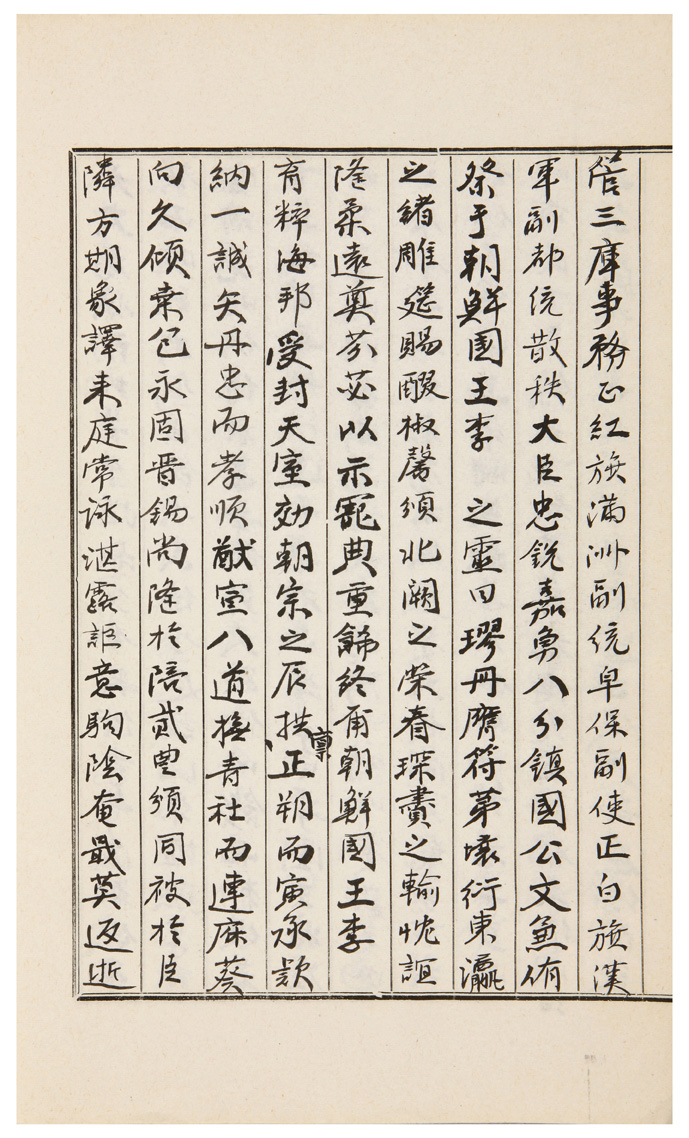 管三庫事務正紅旗滿洲副統卓保副使正白旗漢
軍副都統散秩大臣忠銳嘉勇八分鎮國公文兼侑
祭于朝鮮國王李 之靈曰璆丹膺符茅壤衍東瀛
之緒雕筵賜醊椒馨頒北闕之榮眷琛賮之輸忱誼
隆柔遠奠芬苾以示寵典重餙終甫朝鮮國王李
育粹海邦受封天室効朝宗之辰拱正朔稟而寅承欵
納一誠矢丹忠而孝順猷宣八道撫青社而連庥葵
向久傾桒包永固晋錫尚隆於陪貳曲頒同被於臣
隣方期象譯来庭常詠湛露詎意駒陰奄戢莫返逝